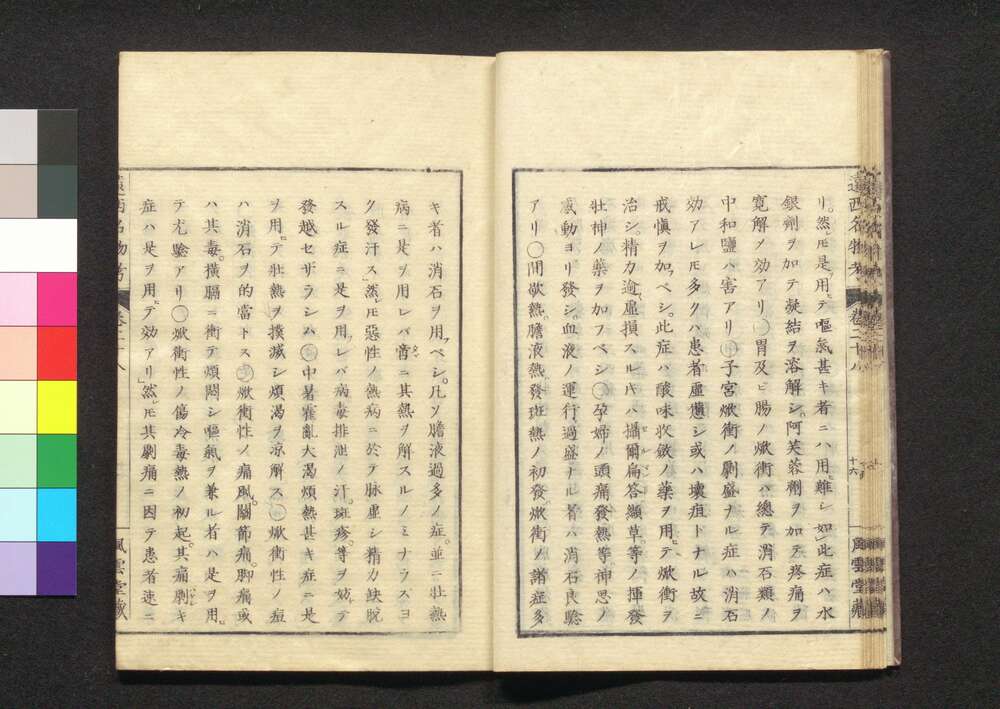 リ。然ルニ是ヲ用テ嘔氣甚キ者ニハ用難シ如此症ハ水
銀劑ヲ加テ凝結ヲ溶解シ。阿芙蓉劑ヲ加テ疼痛ヲ
寛解ノ効アリ〇胃及ヒ腸ノ焮衝ハ總テ消石類ノ
中和鹽ハ害アリ〇子宮焮衝ノ劇盛ナル症ハ消石
効アレ𪜈多クハ患者虛憊シ或ハ壞疽トナル故ニ
戒愼ヲ加フベシ。此症ハ酸味收斂ノ藥ヲ用テ焮衝ヲ
治シ。精力逾虛損スル𪜈ハ攝爾扁答纈草。等ノ揮發
壯神ノ藥ヲ加フベシ〇孕婦ノ頭痛發熱等。神思ノ
感動ヨリ發シ。血液ノ運行過盛ナル者ハ消石良驗
アリ〇間歇熱。膽液熱。發斑熱ノ初發。焮衝ノ諸症多
遠西名物考 卷二十八
十六
風雲堂藏
キ者ハ消石ヲ用フベシ。凡ソ膽液過多ノ症。並ニ壯熱
病ニ是ヲ用レバ啻ニ其熱ヲ解スルノミナラズヨ
ク發汗ス然𪜈惡性ノ熱病ニ於テ脉虛シ精力缺脫
スル症ニ是ヲ用フレバ病毒排泄ノ汗。斑疹。等ヲ妨テ
發越セザラシム〇中暑霍亂大渴煩熱甚キ症ニ是
ヲ用テ壯熱ヲ撲滅シ煩渴ヲ涼解ス〇焮衝性ノ痘
ハ消石ヲ的當トス〇焮衝性ノ痛風。關節痛。脚痛或
ハ其毒。橫膈ニ衝テ煩悶シ嘔氣ヲ兼ル者ハ是ヲ用
テ尤驗アリ〇焮衝性ノ傷冷毒熱ノ初起。其痛劇キ
症ハ是ヲ用テ効アリ」然𪜈其劇痛ニ因テ患者速ニ
遠西名物考 卷二十八
風雲堂藏